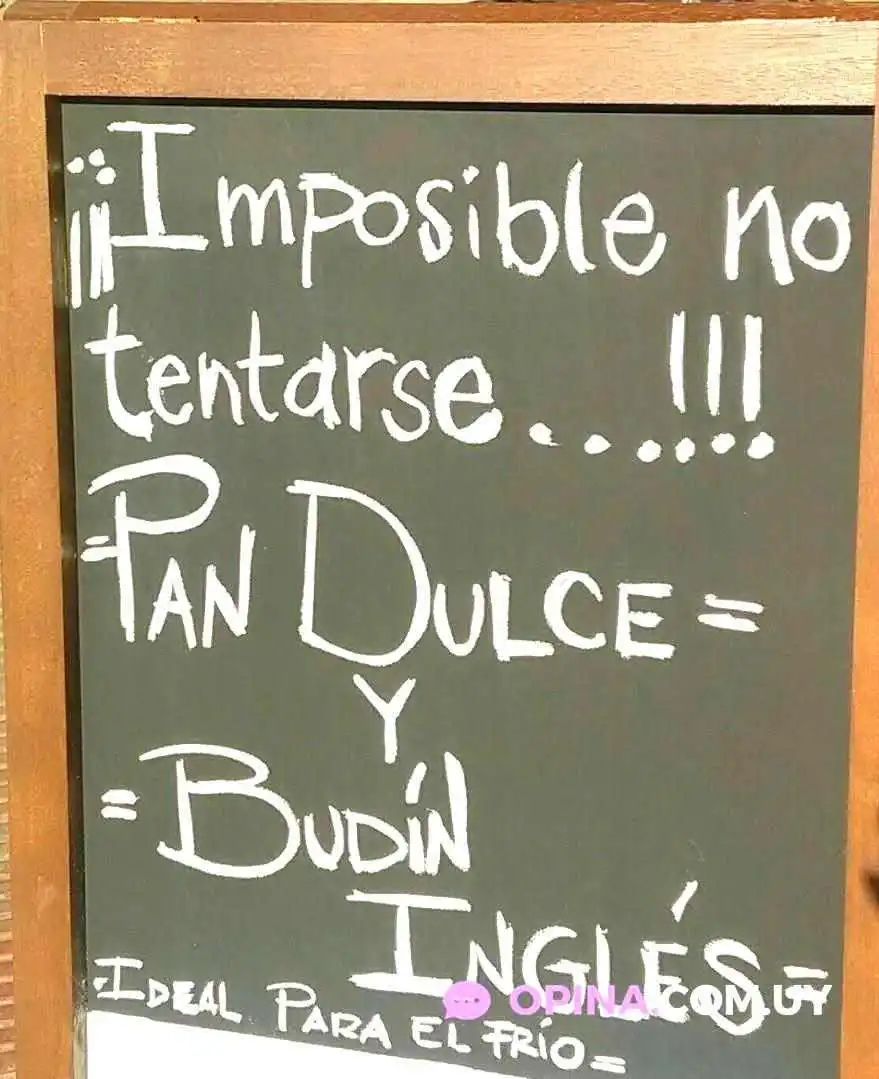 ¡¡¡Imposible no
tentarse...!!!
=PAN DULCE=
Y
=BUDÍN
INGLÉS=
·IDEAL PARA EL FRÍO=
OPINA.COM.UY